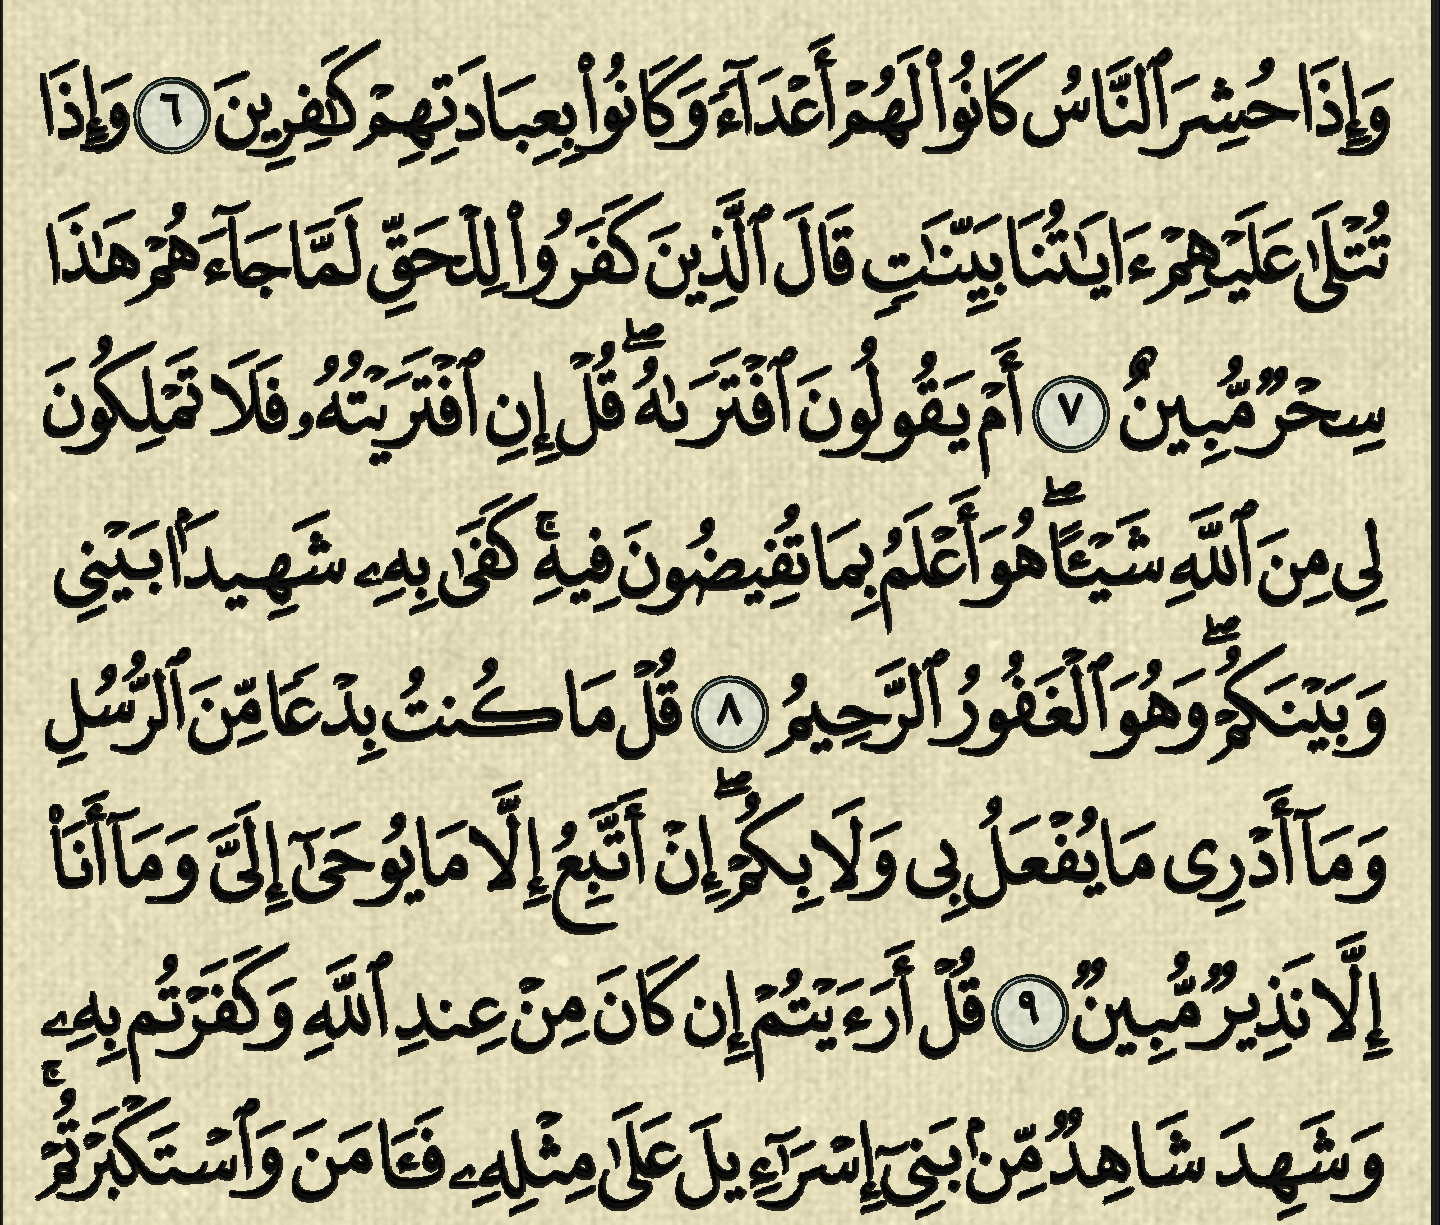 وَإِذَا حُشِرَ ٱلنَّاسُ كَانُوا۟ لَهُمْ أَعْدَآءً وَكَانُوا۟ بِعِبَادَتِهِمْ كَـٰفِرِينَ ٦ وَإِذَا
تُتْلَىٰ عَلَيْهِمْ ءَايَـٰتُنَا بَيِّنَـٰتٍ قَالَ ٱلَّذِينَ كَفَرُوا۟ لِلْحَقِّ لَمَّا جَآءَهُمْ هَـٰذَا
سِحْرٌ مُّبِينٌ ٧ أَمْ يَقُولُونَ ٱفْتَرَىٰهُ ۖ قُلْ إِنِ ٱفْتَرَيْتُهُۥ فَلَا تَمْلِكُونَ
لِى مِنَ ٱللَّهِ شَيْـًٔا ۖ هُوَ أَعْلَمُ بِمَا تُفِيضُونَ فِيهِ ۚ كَفَىٰ بِهِۦ شَهِيدًۢا بَيْنِى
وَبَيْنَكُمْ ۖ وَهُوَ ٱلْغَفُورُ ٱلرَّحِيمُ ٨ قُلْ مَا كُنتُ بِدْعًا مِّنَ ٱلرُّسُلِ
وَمَآ أَدْرِى مَا يُفْعَلُ بِى وَلَا بِكُمْ ۖ إِنْ أَتَّبِعُ إِلَّا مَا يُوحَىٰٓ إِلَىَّ وَمَآ أَنَا۠
إِلَّا نَذِيرٌ مُّبِينٌ ٩ قُلْ أَرَءَيْتُمْ إِن كَانَ مِنْ عِندِ ٱللَّهِ وَكَفَرْتُم بِهِۦ
وَشَهِدَ شَاهِدٌ مِّنۢ بَنِىٓ إِسْرَٰٓءِيلَ عَلَىٰ مِثْلِهِۦ فَـَٔامَنَ وَٱسْتَكْبَرْتُمْ ۚ